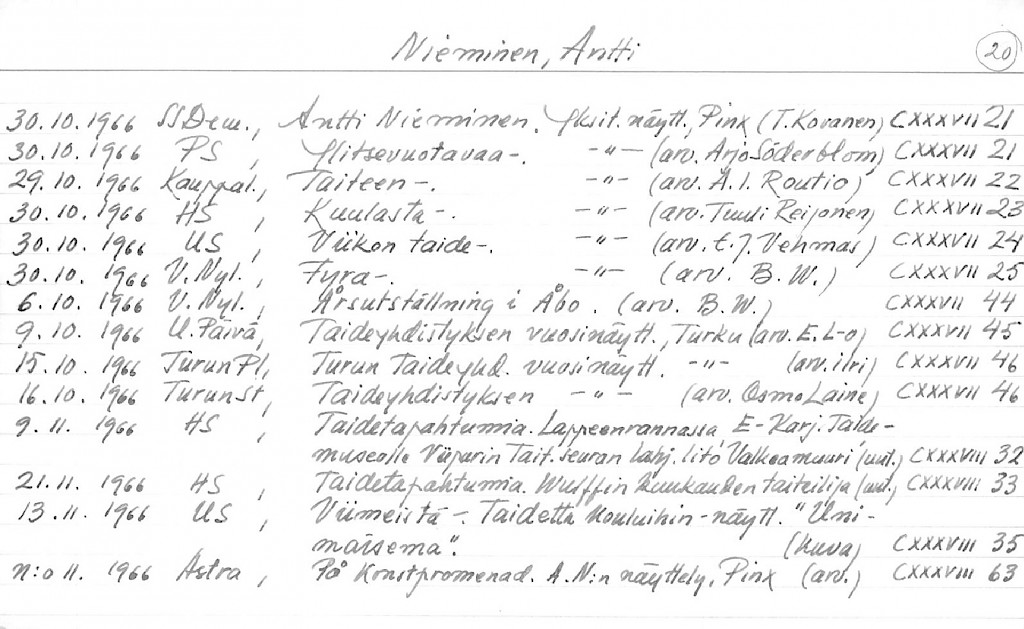 Nieminen, Antti 20
30.10.1966 SSDem., Antti Nieminen. Yksit. näytt., Pinx (T. Kovanen) CXXXVII 21
30.10.1966 PS, Ylitsevuotavaa-. -"- (arv. Arjo Söderblom) CXXXVII 21
29.10.1966 Kauppal., Taiteen-. -"- (arv. A.I. Routio) CXXXVII 22
30.10.1966 HS, Kuulasta-. -"- (arv. Tuuli Reijonen) CXXXVII 23
30.10.1966 US, Viikon taide-. -"- (arv. E.J. Vehmas) CXXXVII 24
30.10.1966 V. Nyl., Fyra-. -"- (arv. B.W.) CXXXVII 25
6.10.1966 V. Nyl., Årsutställning i Åbo. (arv. B.W.) CXXXVII 44
9.10.1966 U. Päivä, Taideyhdistyksen vuosinäytt., Turku (arv. E. L-o) CXXXVII 45
15.10.1966 Turun Pl, Turun Taideyhd. vuosinäytt. -"- (arv. ilri) CXXXVII 46
16.10.1966 Turun St, Taideyhdistyksen -"- (arv. Osmo Laine) CXXXVII 46
9.11.1966 HS, Taidetapahtumia. Lappeenrannassa E-Karj. Taide-
museolle Viipurin Tait. seuran lahj. Valkoamuuri (uut.) CXXXVIII 32
21.11.1966 HS, Taidetapahtumia. Wulffin kuukauden taiteilija (uut.) CXXXVIII 33
13.11.1966 US, Viimeistä-. Taidetta kouluihin-näytt. "Uni-
maisema". (kuva) CXXXVIII 35
n:o 11. 1966 Astra, På konstpromenad. A.N:n näyttely, Pinx (arv.) CXXXVIII 63